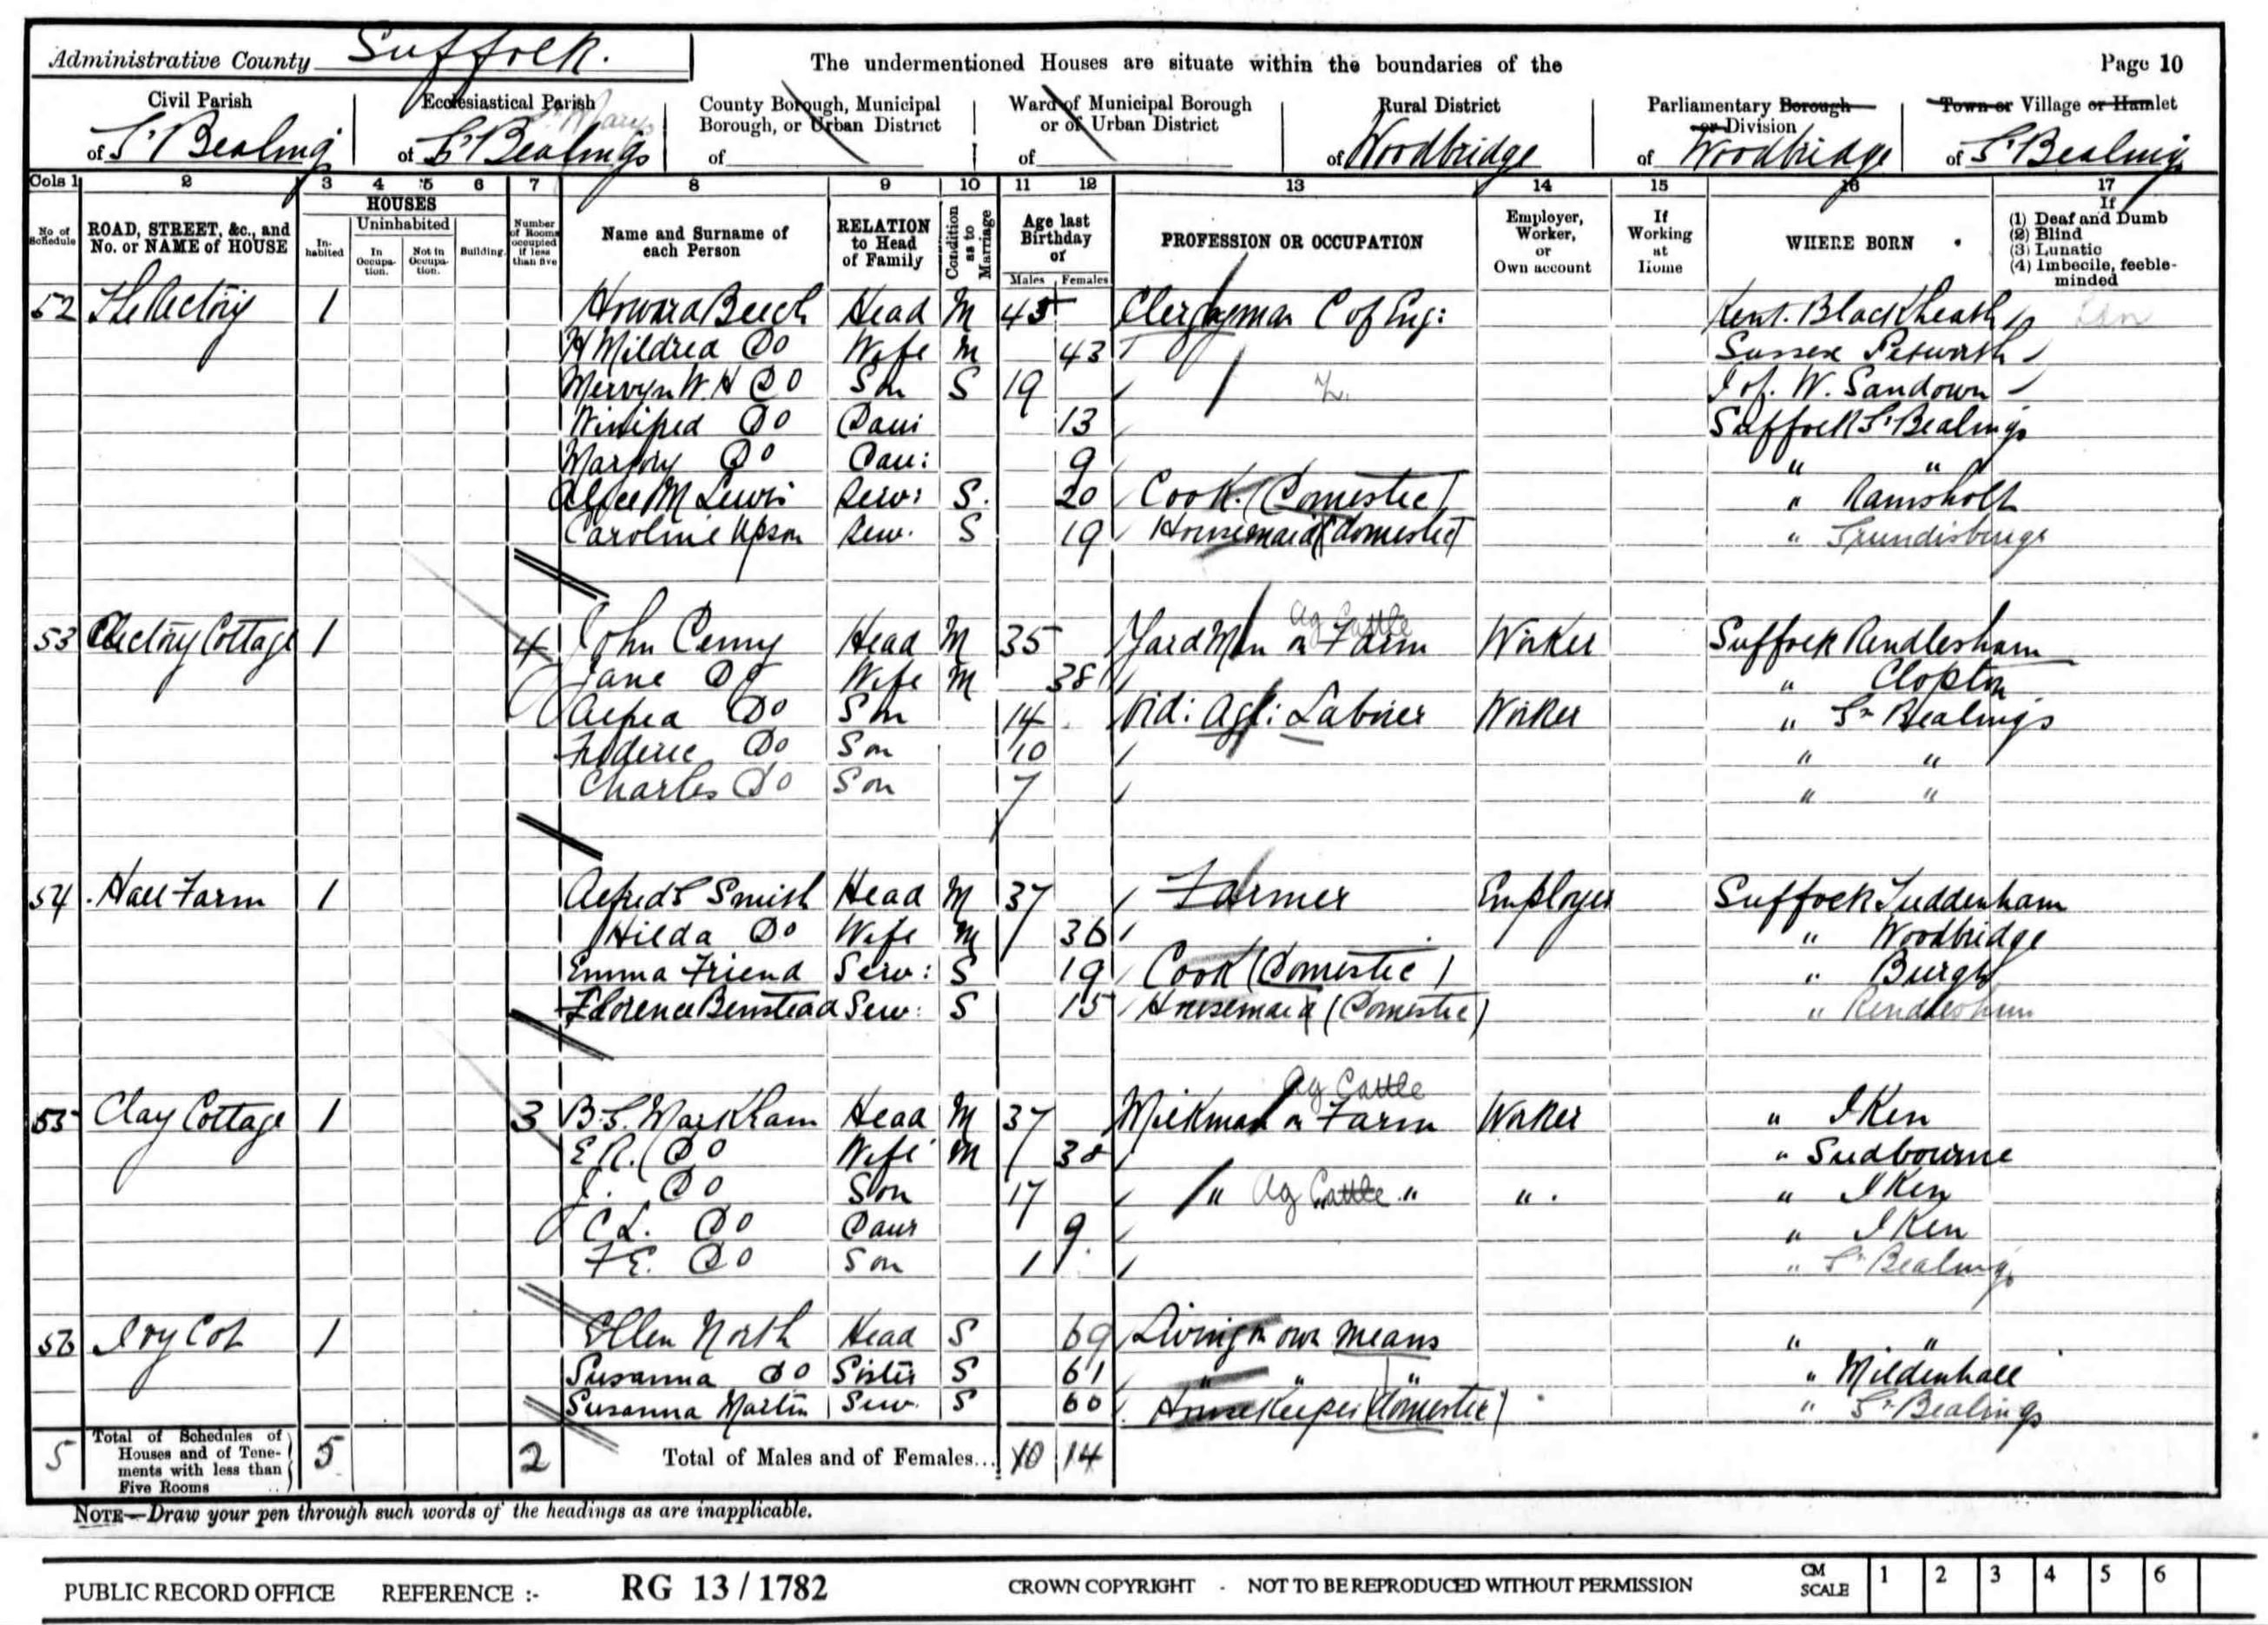 Administrative County Suffolk. The undermentioned Houses are situate within the boundaries of the Page 10
Civil Parish of Sr Bealings
Ecclesiastical Parish of Sr Bealings St Mary
County Borough, Municipal Borough, or Urban District of
Ward of Municipal Borough or of Urban District of
Rural District of Woodbridge
Parliamentary Borough or Division of Woodbridge
Town or Village or Hamlet of Sr Bealings
Cols 1 2 3 4 5 6 7 8 9 10 11 12 13 14 15 16 17
No of Schedule
ROAD, STREET, &c., and No. or NAME of HOUSE
HOUSES
Inhabited
Uninhabited
In Occupation.
Not in Occupation.
Building
Number of Rooms occupied if less than five
Name and Surname of each Person
RELATION to Head of Family
Condition as to Marriage
Age last Birthday of
Males Females
PROFESSION OR OCCUPATION
Employer, Worker, or Own account
If Working at Home
WHERE BORN
If
(1) Deaf and Dumb
(2) Blind
(3) Lunatic
(4) Imbecile, feeble-minded
52 The Rectory 1 Howard Beech Head M 45 Clergyman C of Eng: Kent. Blackheath
H Mildred Do Wife M 43 Sussex Petworth
Mervyn W. H Do Son S 19 I of. W. Sandown
Winifred Do Dau 13 Suffolk Sr Bealings
Marjory Do Dau: 9 " "
Alice M Lewis Serv: S. 20 Cook. (Domestic) " Ramsholt
Caroline Upson Serv. S 19 Housemaid (domestic) " Grundisburgh
53 Rectory Cottage 1 4 John Penny Head M 35 Yard Man on Farm Ag Cattle Worker Suffolk Rendlesham
Jane Do Wife M 38 " Clopton
Alfred Do Son 14 Ord: Agl: Labourer Worker " Sr Bealings
Frederic Do Son 10 " "
Charles Do Son 7 " "
54 Hall Farm 1 Alfred S Smith Head M 37 Farmer Employer Suffolk Tuddenham
Hilda Do Wife M 36 " Woodbridge
Emma Friend Serv: S 19 Cook (Domestic) " Burgh
Florence Benstead Serv: S 15 Housemaid (Domestic) " Rendlesham
55 Clay Cottage 1 3 B. S. Markham Head M 37 Milkman on Farm Ag Cattle Worker " Iken
E R. Do Wife M 38 " Sudbourne
J. Do Son 17 " Ag Cattle " " " Iken
C L. Do Daur 9 " Iken
F E. Do Son 1 " Sr Bealings
56 Ivy Cot 1 Ellen North Head S 69 Living on own means " "
Susanna Do Sister S 61 " " " " Mildenhall
Susanna Martin Serv. S 60 Housekeeper (domestic) " Sr Bealings
5 Total of Schedules of Houses and of Tenements with less than Five Rooms 5 2 Total of Males and of Females... 10 14
NOTE—Draw your pen through such words of the headings as are inapplicable.
PUBLIC RECORD OFFICE REFERENCE :- RG 13 / 1782 CROWN COPYRIGHT - NOT TO BE REPRODUCED WITHOUT PERMISSION CM SCALE 1 2 3 4 5 6